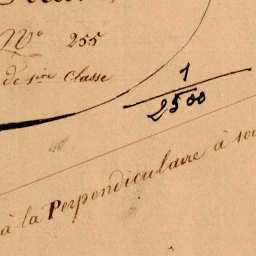 Nº 255
de 1ère Classe
1
2500
à la Perpendiculaire à